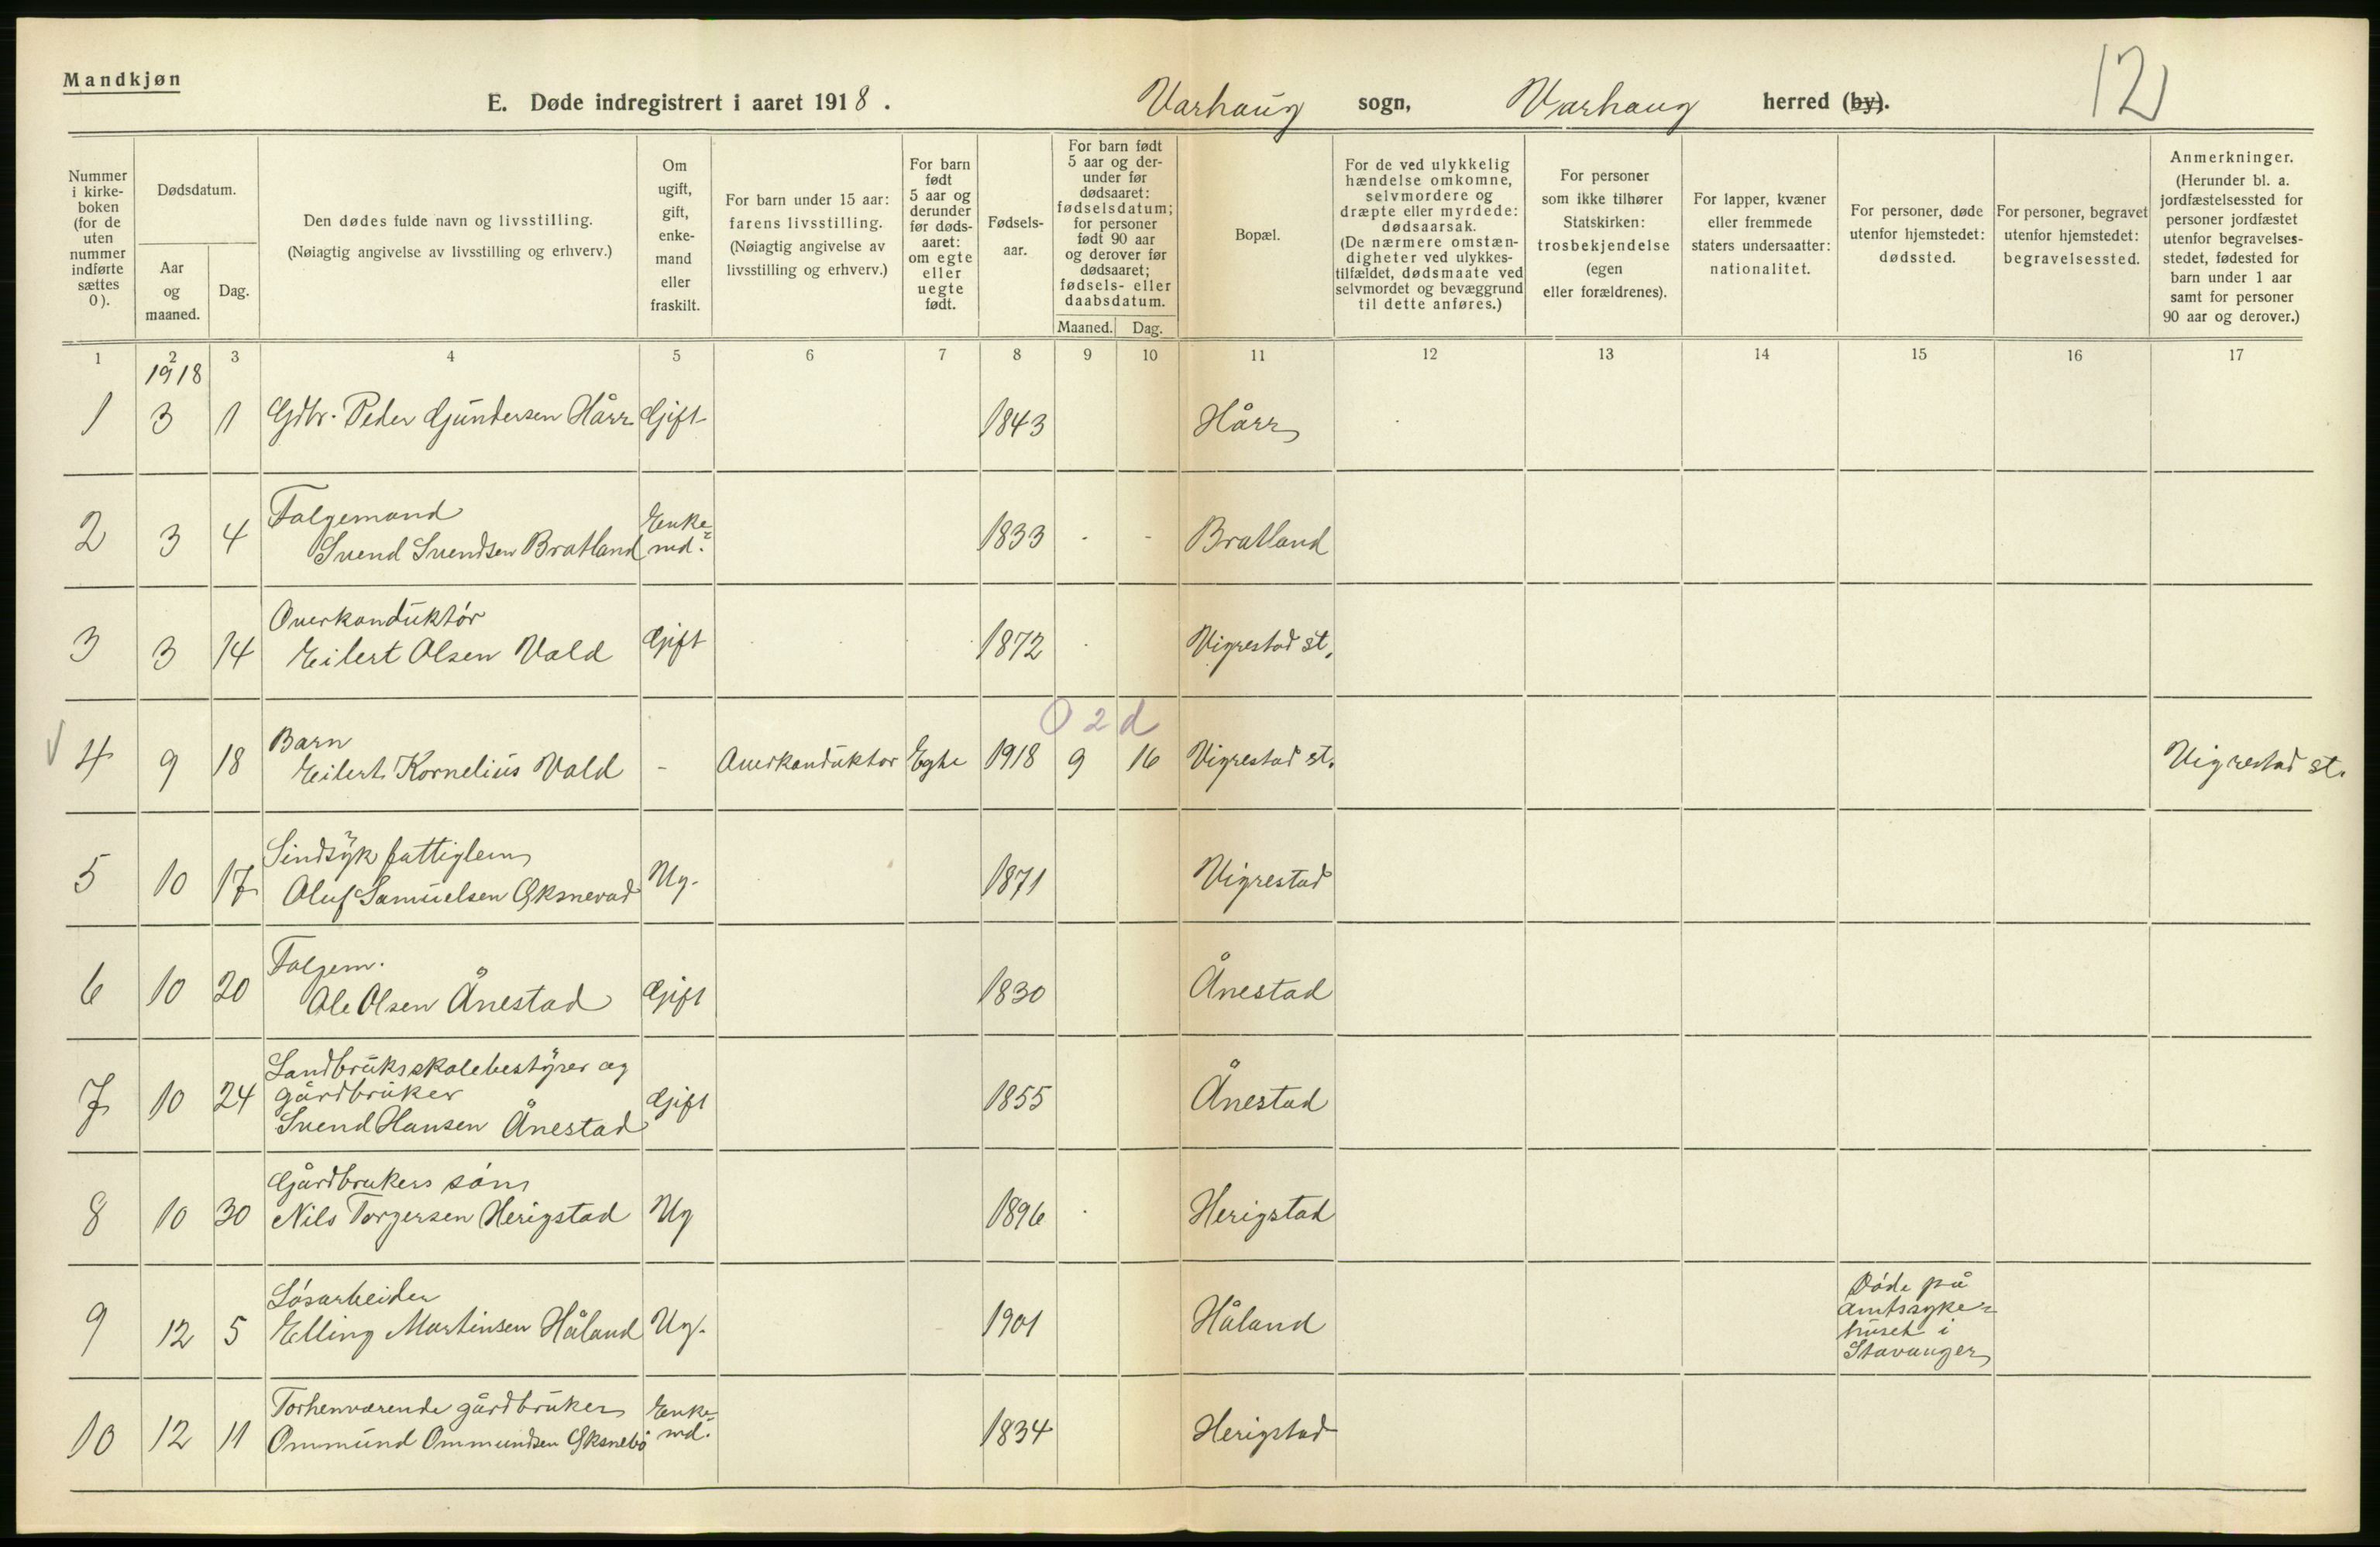 Mandkjøn
E. Døde indregistrert i aaret 1918.
Varhaug sogn, Varhaug herred (by).
12
Nummer i kirke-boken (for de uten nummer indførte sættes 0).
Dødsdatum.
Aar og maaned.
Dag.
Den dødes fulde navn og livsstilling.
(Nøiagtig angivelse av livsstilling og erhverv.)
Om ugift, gift, enke-mand eller fraskilt.
For barn under 15 aar: farens livsstilling.
(Nøiagtig angivelse av livsstilling og erhverv.)
For barn født 5 aar og derunder før døds-aaret: om egte eller uegte født.
Fødsels-aar.
For barn født 5 aar og der-under før dødsaaret: fødselsdatum; for personer født 90 aar og derover før dødsaaret; fødsels- eller daabsdatum.
Maaned. Dag.
Bopæl.
For de ved ulykkelig hændelse omkomne, selvmordere og dræpte eller myrdede: dødsaarsak.
(De nærmere omstæn-digheter ved ulykkes-tilfældet, dødsmaate ved selvmordet og bevæggrund til dette anføres.)
For personer som ikke tilhører Statskirken: trosbekjendelse (egen eller forældrenes).
For lapper, kvæner eller fremmede staters undersaatter: nationalitet.
For personer, døde utenfor hjemstedet: dødssted.
For personer, begravet utenfor hjemstedet: begravelsessted.
Anmerkninger.
(Herunder bl. a. jordfæstelsessted for personer jordfæstet utenfor begravelses-stedet, fødested for barn under 1 aar samt for personer 90 aar og derover.)
1 2 3 4 5 6 7 8 9 10 11 12 13 14 15 16 17
1918
1 3 1 Gdbr. Peder Gundersen Hårr Gift 1843 Hårr
2 3 4 Folgemand
Svend Svendsen Bratland Enke-md. 1833 - - Bratland
3 3 14 Overkonduktór
Eilert Olsen Vold Gift 1872 Vigrestad st.
0 2 d
4 9 18 Barn
Eilert Kornelius Vold - Overkonduktor Egte 1918 9 16 Vigrestad st. Vigrestad st.
5 10 17 Sindsyk fattiglem
Oluf Samuelsen Gksnevad Ug. 1871 Vigrestad
6 10 20 Folgem.
Ole Olsen Ånestad Gift 1830 Ånestad
7 10 24 Landbruksskolebestyrer og
gårdbruker
Svend Hansen Ånestad Gift 1855 Ånestad
8 10 30 Gårdbrukers són
Nils Torgersen Herigstad Ug 1896 Herigstad
9 12 5 Lósarbeider
Elling Martinsen Håland Ug. 1901 Håland Dóde på
amtssyke-
huset i
Stavanger
10 12 11 Forhenværende gårdbruker
Ommund Ommundsen Gksnebó Enke-md. 1834 Herigstad